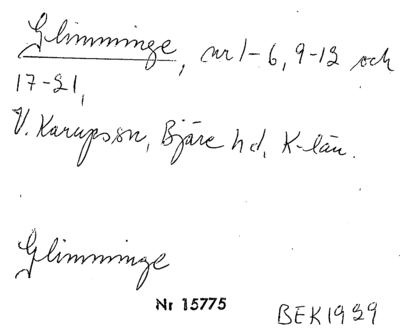 Glimminge, nr 1-6, 9-12 och
17-21,
V. Karups sn, Bjäre hd, K-län.
Glimminge
Nr 15775
BEK 1929